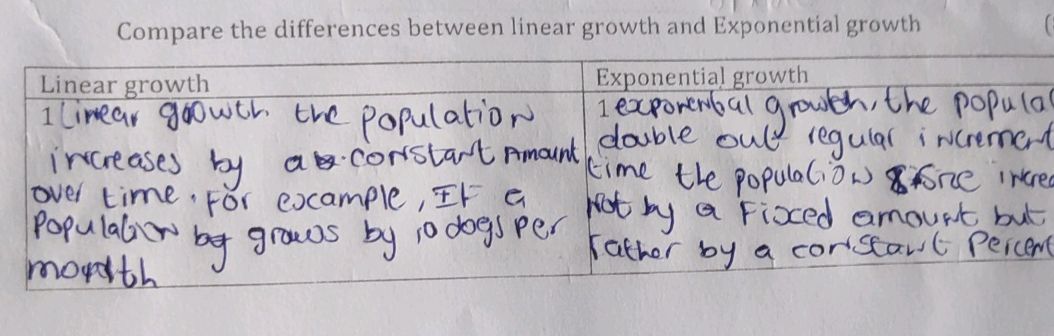 Compare the differences between linear growth and Exponential growth (
Linear growth
1 Linear goowth the population
increases by a constant Amount
over time. For example, IF a
Population by grows by 10 dogs per
month
Exponential growth
1 exponential growth, the popula
double out regular increment
time the population size increa
Not by a Fixed amount but
rather by a constant Percent